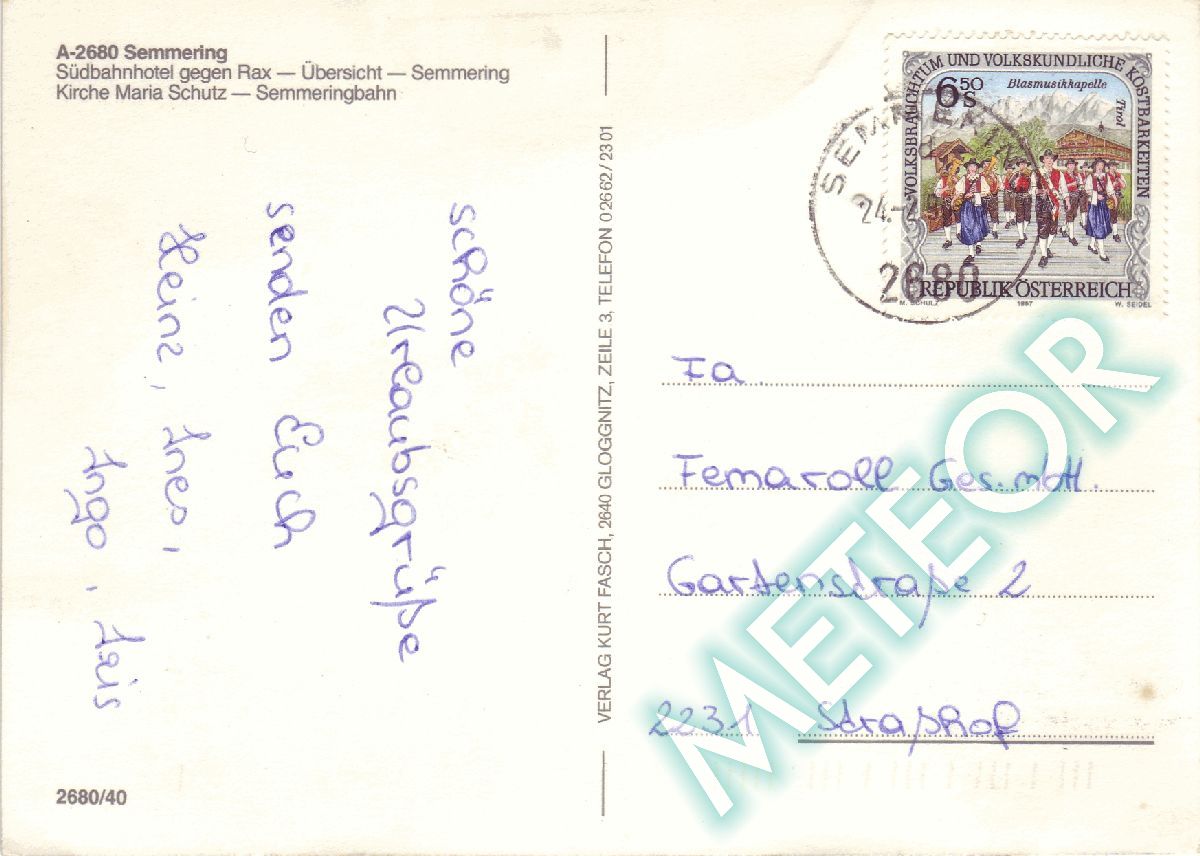 A-2680 Semmering
Südbahnhotel gegen Rax — Übersicht — Semmering
Kirche Maria Schutz — Semmeringbahn
schöne
Urlaubsgrüße
senden Euch
Heinz, Ines,
Ingo, Iris
2680/40
VERLAG KURT FASCH, 2640 GLOGGNITZ, ZEILE 3, TELEFON 02662/2301
VOLKSBRAUCHTUM UND VOLKSKUNDLICHE KOSTBARKEITEN
650 S
Blasmusikkapelle
Tirol
REPUBLIK ÖSTERREICH
M. SCHULZ 1997 W. SEIDEL
SEMMERING
24.-
2680
Fa.
Femaroll Ges.mbH.
Gartenstraße 2
2231 Straßhof
METEOR